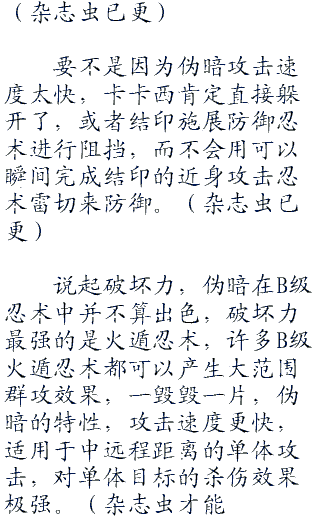 （杂志虫已更）
要不是因为伪暗攻击速
度太快，卡卡西肯定直接躲
开了，或者结印施展防御忍
术进行阻挡，而不会用可以
瞬间完成结印的近身攻击忍
术雷切来防御。（杂志虫已
更）
说起破坏力，伪暗在B级
忍术中并不算出色，破坏力
最强的是火遁忍术，许多B级
火遁忍术都可以产生大范围
群攻效果，一毁毁一片，伪
暗的特性，攻击速度更快，
适用于中远程距离的单体攻
击，对单体目标的杀伤效果
极强。（杂志虫才能